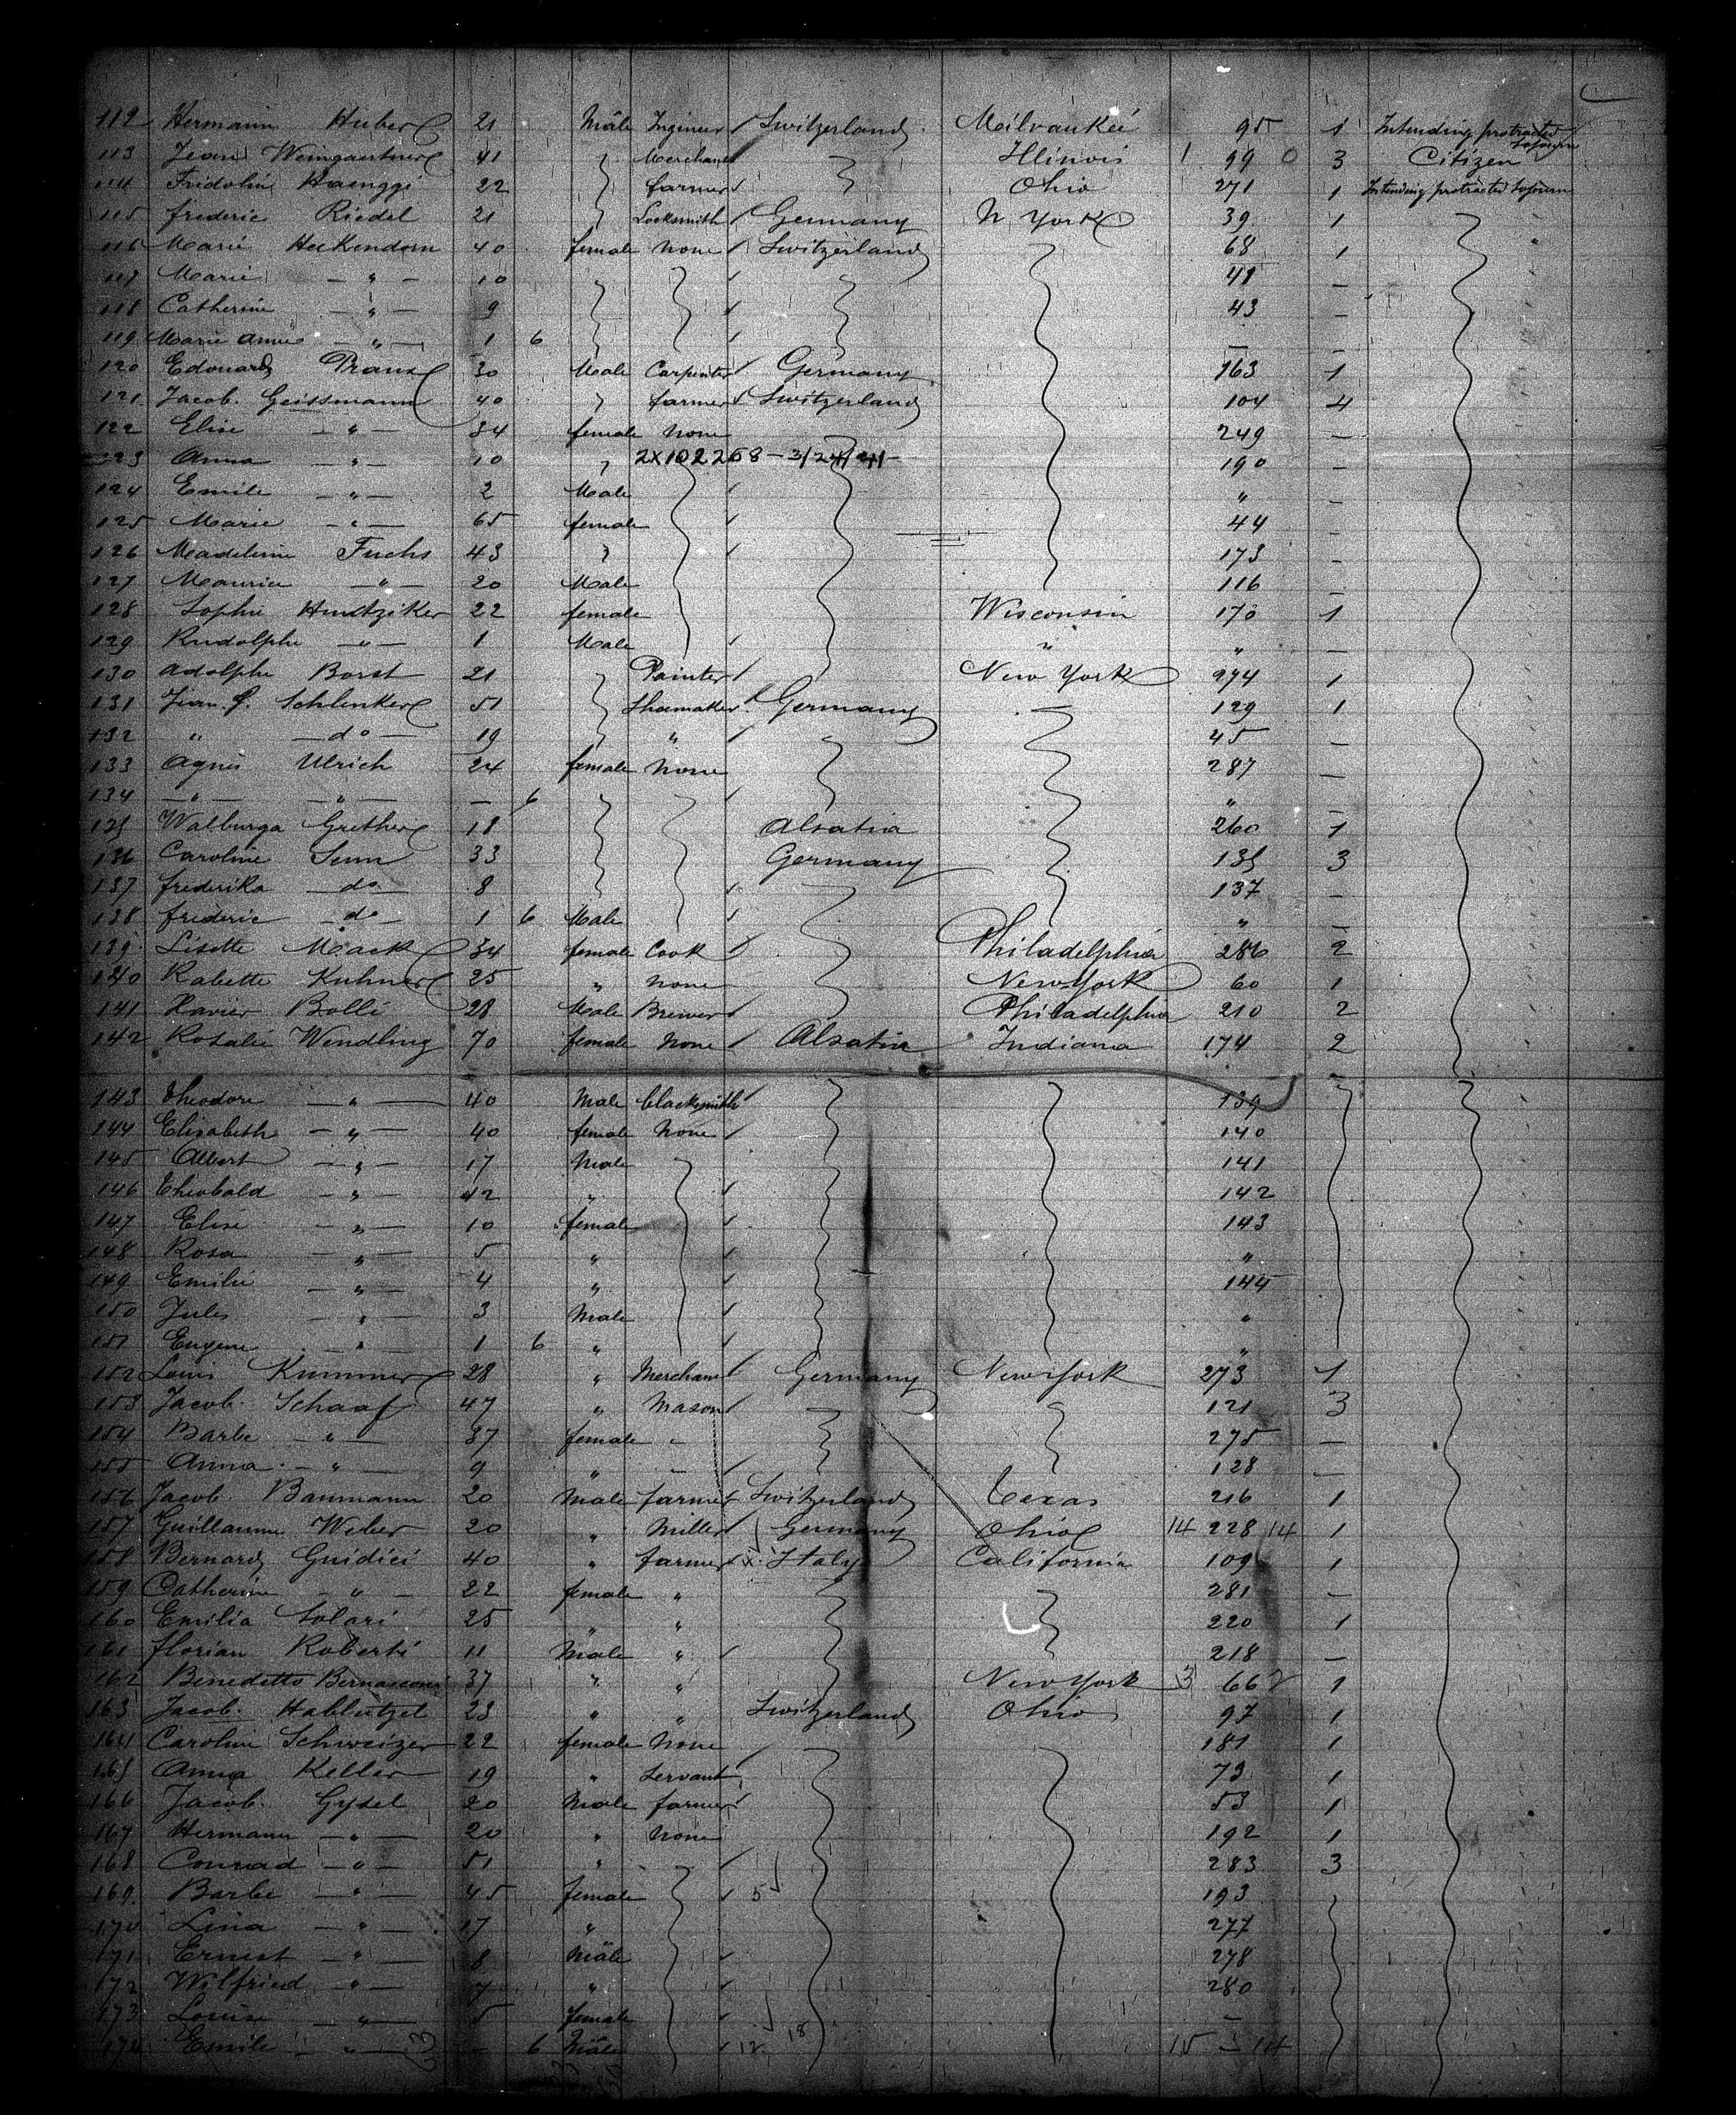 112 Hermann Huber 21 Male Ingineer Switzerland Milvaukee 95 1 Intending protracted Sojourn
113 Jean Weingaertner 41 Merchant Illinois 1 99 0 3 Citizen
114 Fridolin Haenggi 22 farmer Ohio 271 1 Intending protracted Sojourn
115 frederic Riedel 21 Locksmith Germany N York 39 1
116 Marie Heckendorn 40 female None Switzerland 68 1
117 Marie — " — 10 41 —
118 Catherine — " — 9 43 —
119 Marie Anne — " — 1 6 — —
120 Edouard Pranz 30 Male Carpenter Germany 163 1
121 Jacob Geissmann 40 farmer Switzerland 104 4
122 Elise — " — 34 female None 249 —
123 Anna — " — 10 2X102268 - 3/24/41 190 —
124 Emile — " — 2 Male " —
125 Marie — " — 65 female 44 —
126 Madeleine Fuchs 43 173 —
127 Maurice — " — 20 Male 116 —
128 Sophie Huntziker 22 female Wisconsin 170 1
129 Rudolphe — " — 1 Male " " —
130 Adolphe Borst 21 Painter New York 974 1
131 Jean G. Schlenker 51 Shoemaker Germany 129 1
132 " — do — 19 " 45 —
133 Agnes Ulrich 24 female None 287 —
134 — " — — " — — 6 " —
135 Walburga Grether 18 Alsatia 260 1
136 Caroline Senn 33 Germany 135 3
137 frederika — do — 8 137 —
138 frederic — do — 1 6 Male " —
139 Lisette Mack 34 female Cook Philadelphia 286 2
140 Babette Kuhner 25 " None New York 60 1
141 Xavier Bolli 28 Male Brewer Philadelphia 210 2
142 Rosalie Wendling 70 female None Alsatia Indiana 174 2
143 Theodore — " — 40 Male blacksmith 139
144 Elisabeth — " — 40 female None 140
145 Albert — " — 17 Male 141
146 Theobald — " — 42 " 142
147 Elise — " — 10 female 143
148 Rosa — " — 5 " "
149 Emilie — " — 4 " 144
150 Jules " 3 Male "
151 Eugene " 1 6 " "
152 Louis Kummer 28 " Merchant Germany New York 273 1
153 Jacob Schaaf 47 " Mason 121 3
154 Barbe — " — 37 female " 275 —
155 Anna — " — 9 " — 128 —
156 Jacob Baumann 20 Male farmer Switzerland Texas 216 1
157 Guillaume Weber 20 " Miller Germany Ohio 14 228 14 1
158 Bernard Guidici 40 " farmer X Italy California 109 1
159 Catherine — " — 22 female " 281 —
160 Emilia Solari 25 " " 220 1
161 florian Roberti 11 Male " 218 —
162 Benedetto Bernasconi 37 " " New York 3 66 2 1
163 Jacob Hablützel 23 " " Switzerland Ohio 97 1
164 Caroline Schweizer 22 female None 181 1
165 Anna Keller 19 " Servant 73 1
166 Jacob Gysel 20 Male farmer 53 1
167 Hermann — " — 20 " None 192 1
168 Conrad — " — 51 " 283 3
169 Barbe — " — 45 female 5 193
170 Lina — " — 17 " 277
171 Ernest — " — 8 Male 278
172 Wilfried — " — 7 " 280
173 Louise — " — 5 female —
174 Emile — " — — 6 Male 12 18 15 — 14